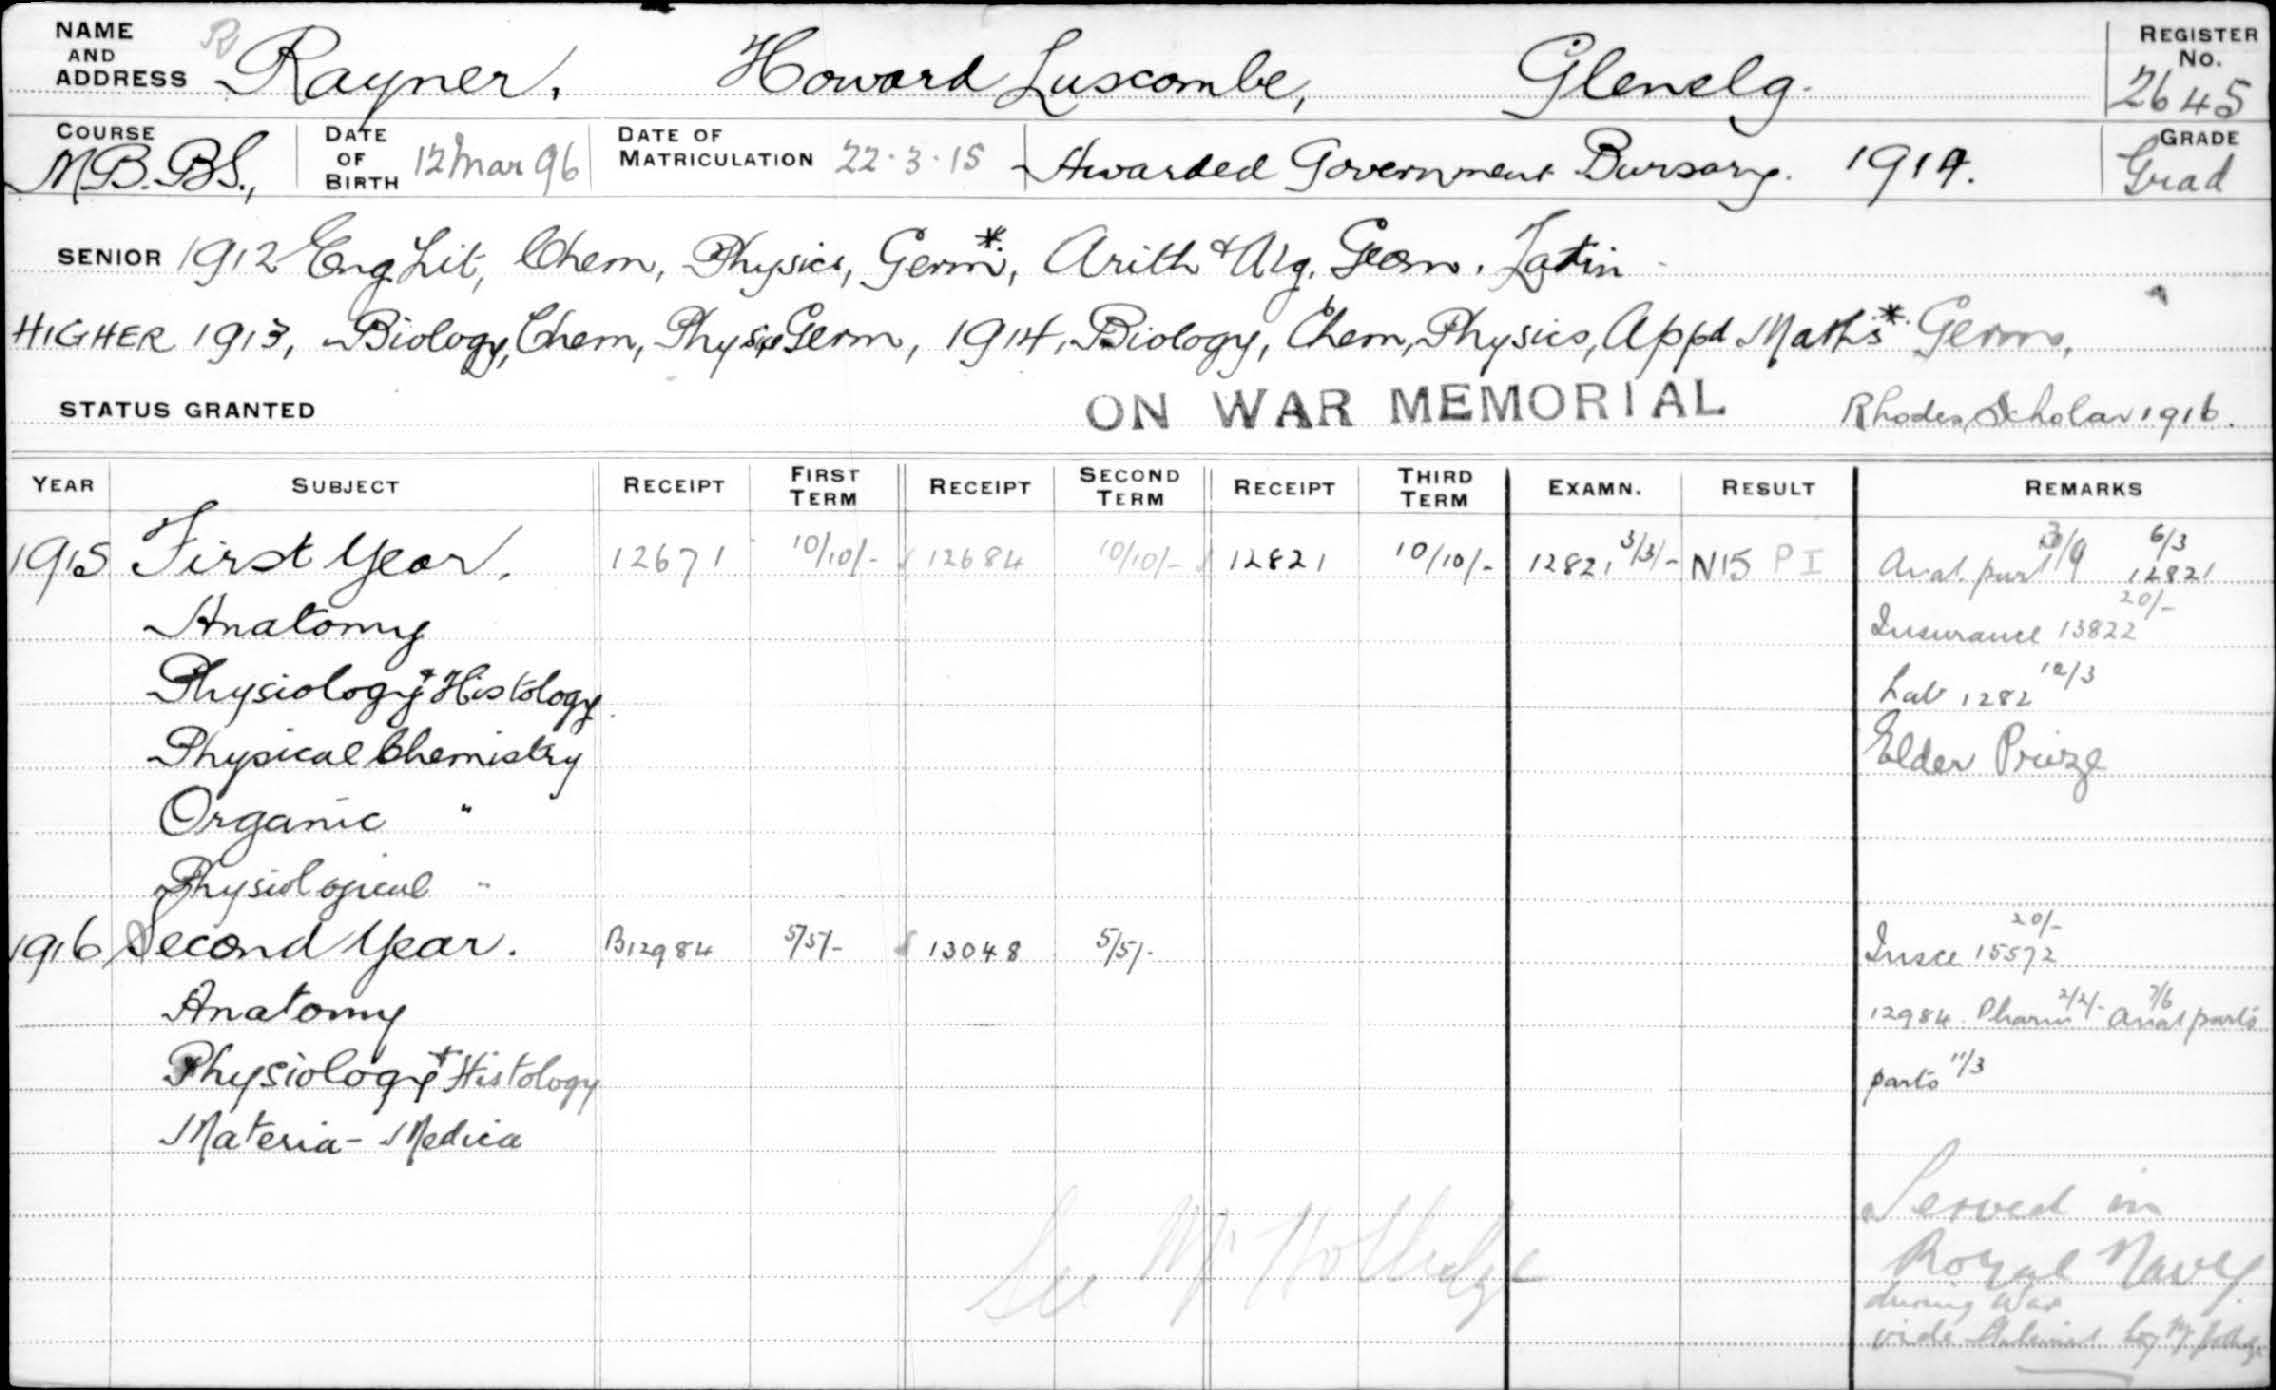 NAME AND ADDRESS Rayner, Howard Luscombe, Glenelg. REGISTER No. 2645
COURSE M.B. B.S., DATE OF BIRTH 12 Mar 96 DATE OF MATRICULATION 22·3·15 Awarded Government Bursary. 1914. GRADE Grad
SENIOR 1912 Eng. Lit, Chem, Physics, Germ*, Arith & Alg, Geom. Latin
HIGHER 1913, Biology, Chem, Physics, Germ, 1914, Biology, Chem, Physics, Appd Maths* Germ.
STATUS GRANTED ON WAR MEMORIAL Rhodes Scholar 1916.
YEAR SUBJECT RECEIPT FIRST TERM RECEIPT SECOND TERM RECEIPT THIRD TERM EXAMN. RESULT REMARKS
1915 First Year. 12671 10/10/- 12684 10/10/- 12821 10/10/- 12821 3/3/- N15 P I Anat. part 6/3 12821
Anatomy Insurance 13822 20/-
Physiology & Histology Lab 1282 10/3
Physical Chemistry Elder Prize
Organic "
Physiological "
1916 Second Year. B12984 5/5/- 13048 5/5/- Insce 15572 20/-
Anatomy 12984 Pharm 2/2/- Anat parts 7/6
Physiology & Histology parts 11/3
Materia-Medica
Served in
See Mr Hollidge Royal Navy
during War
vide Statement by Mr Hollidge